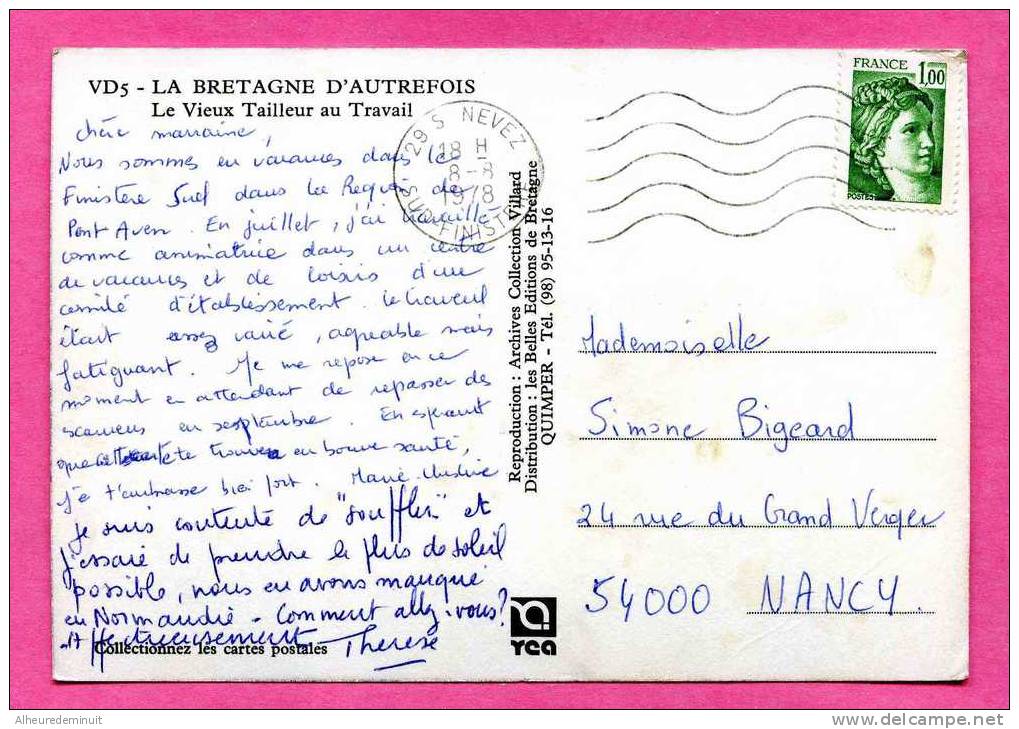 VD5 - LA BRETAGNE D'AUTREFOIS
Le Vieux Tailleur au Travail
chère marraine,
Nous sommes en vacances dans le
Finistère Sud dans la Région de
Pont Aven. En juillet, j'ai travaillé
comme animatrice dans un centre
de vacances et de loisirs d'un
comité d'établissement. Le travail
était assez varié, agréable mais
fatiguant. Je me repose en ce
moment en attendant de repasser des
examens en septembre. En espérant
que te trouve en bonne santé,
je t'embrasse bien fort. Marie
Je suis contente de "souffler" et
j'essaie de prendre le plus de soleil
possible, nous en avons manqué
en Normandie - Comment allez-vous?
Affectueusement Thérèse
Collectionnez les cartes postales
29 S NEVEZ
18 H
8-8
1978
SUD-FINISTERE
Reproduction : Archives Collection Villard
Distribution : les Belles Editions de Bretagne
QUIMPER - Tél. (98) 95-13-16
yca
FRANCE
1,00
POSTES
Mademoiselle
Simone Bigeard
24 rue du Grand Verger
54000 NANCY.
Alheuredeminuit
www.delcampe.net